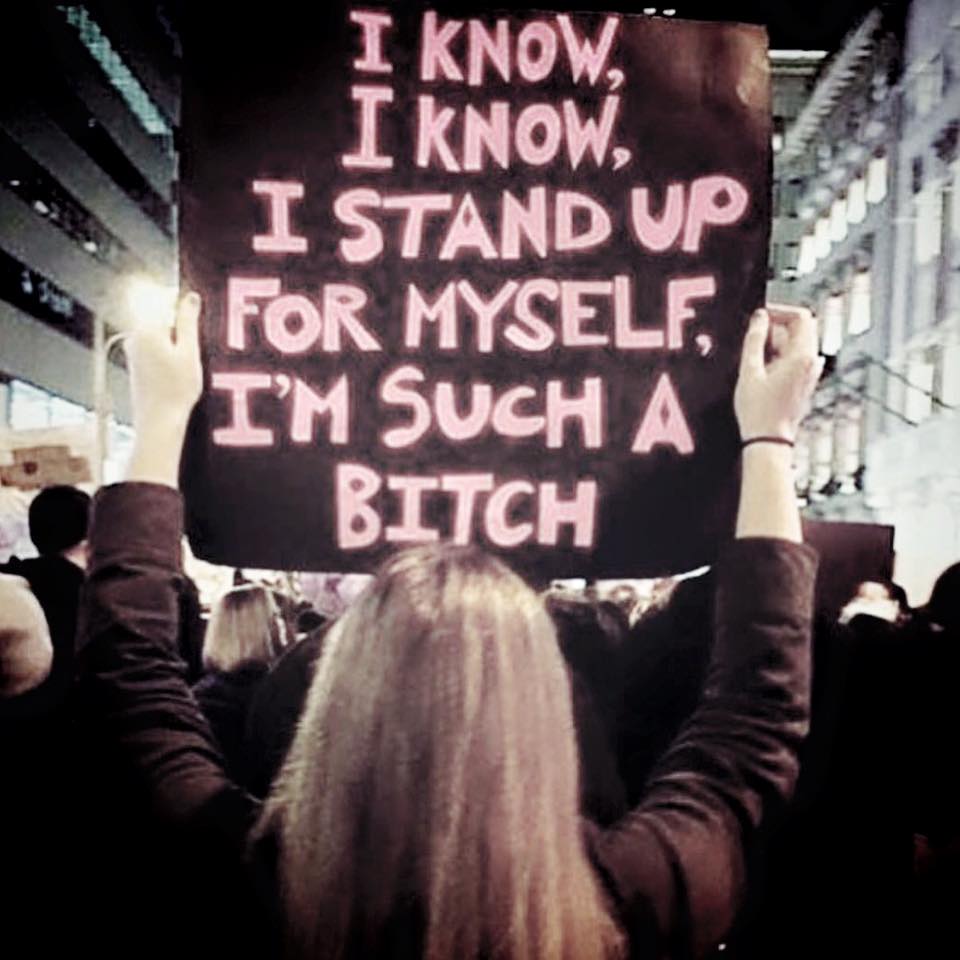 I KNOW,
I KNOW,
I STAND UP
FOR MYSELF,
I'M SUCH A
BITCH